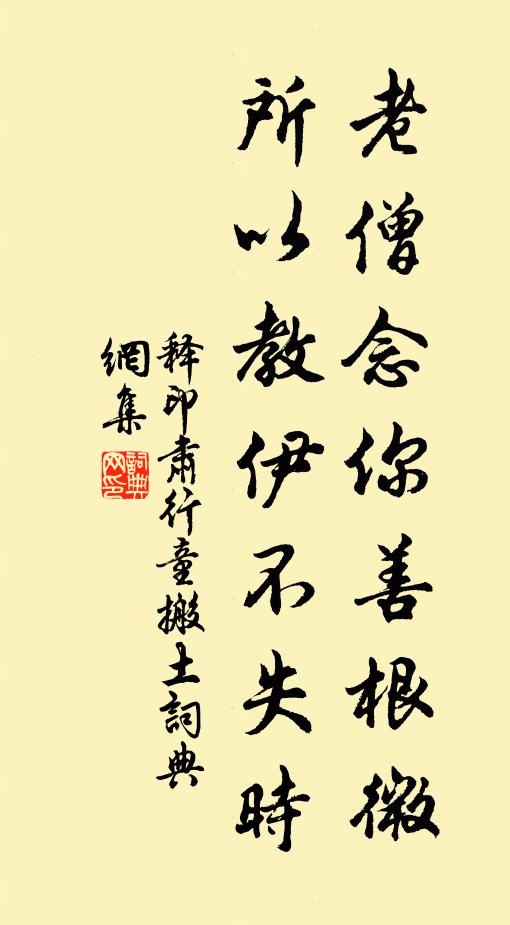 老僧念你善根微
所以教伊不失時
释印肃行童搬土詞典
網集
詞典網印